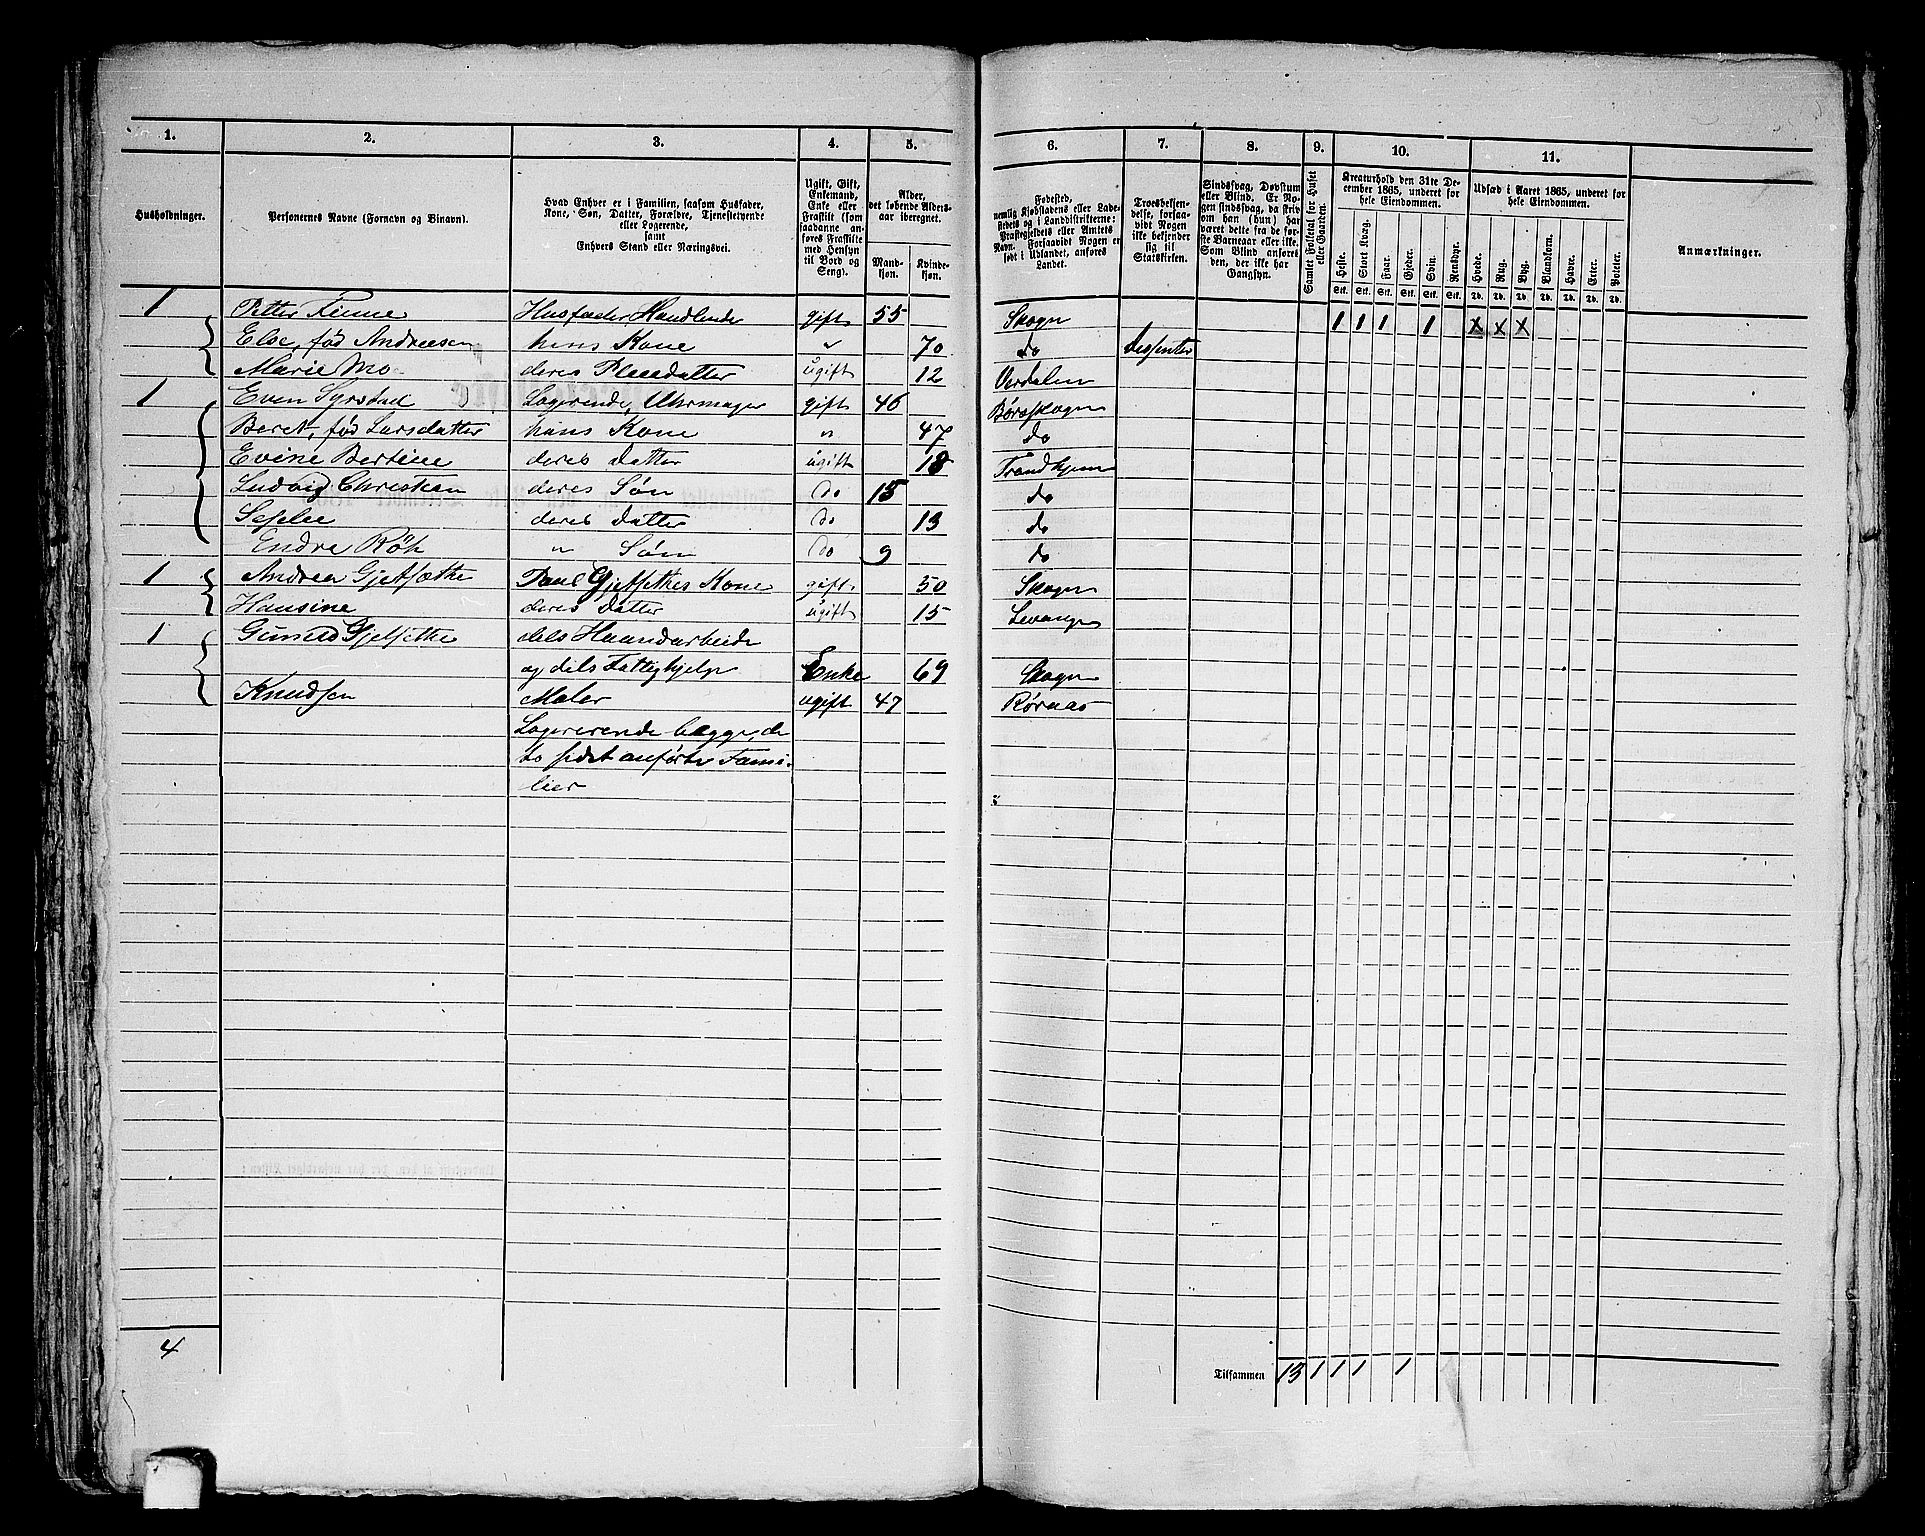 1. 2. 3. 4. 5. 6. 7. 8. 9. 10. 11.
Husholdninger.
Personernes Navne (Fornavn og Binavn).
Hvad Enhver er i Familien, saasom Husfader, Kone, Søn, Datter, Forældre, Tjenestetyende eller Logerende, samt Enhvers Stand eller Næringsvei.
Ugift, Gift, Enkemand, Enke eller Fraskilt (som saadanne anføres Fraskilte med Hensyn til Bord og Seng).
Alder, det løbende Aldersaar iberegnet.
Mandkjøn. Kvindekjøn.
Fødested, nemlig Kjøbstadens eller Ladestedets og i Landdistrikterne: Præstegjeldets eller Amtets Navn. Forsaavidt Nogen er født i Udlandet, anføres Landet.
Troesbekjendelse, forsaavidt Nogen ikke bekjender sig til Statskirken.
Sindssvag, Døvstum eller Blind. Er Nogen sindssvag, da skrives om han (hun) har været dette fra de første Barneaar eller ikke. Som Blind anføres den, der ikke har Gangsyn.
Samlet Folketal for Huset eller Gaarden.
Kreaturhold den 31te December 1865, underet for hele Eiendommen.
Heste. Stort Kvæg. Faar. Gjeder. Svin. Rensdyr.
Stk. Stk. Stk. Stk. Stk. Stk.
Udsæd i Aaret 1865, underet for hele Eiendommen.
Hvede. Rug. Byg. Blandkorn. Havre. Erter. Poteter.
Td. Td. Td. Td. Td. Td. Td.
Anmærkninger.
1 Petter Finne Husfader, Handlende gift 55 Skogn 1 1 1 1 x x x
Else, fød Andreesen hans Kone " 70 do Dissenter
Marie Mo deres Pleiedatter ugift 12 Verdalen
1 Even Syrstad Logerende, Uhrmager gift 46 Børseskogn
Beret, fød Larsdatter hans Kone " 47 do
Evine Bertine deres Datter ugift 18 Trondhjem
Ludvig Christian deres Søn do 15 do
deres Datter do 13 do
Endre " Søn do 9 do
1 Andrea Gjetsæthe Paul Gjetsethes Kone gift 50 Skogn
Hansine deres Datter ugift 15 Levanger
1 Guneld Gjetsethe dels Haandarbeide
og dels Fattighjelp Enke 69 Skogn
Knudsen Maler ugift 47 Rørraas
Logererende begge, de
to sidst anførte Fami-
lier
4
Tilsammen 13 1 1 1 1